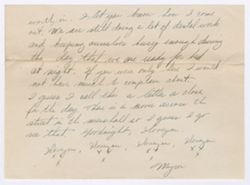 worth in. I let you know how I come
out. We are still doing a lot of dental work
and keeping ourselves busy enough during
the day that we are ready for bed
at night. If you were only here I would
not have much to complain about.
I guess I call this a letter a close
for the day. There is a movie across the
street in the marshall so I guess I go
see that. Goodnight, I love you
I love you, I love you, I love you, I love you
x x x x